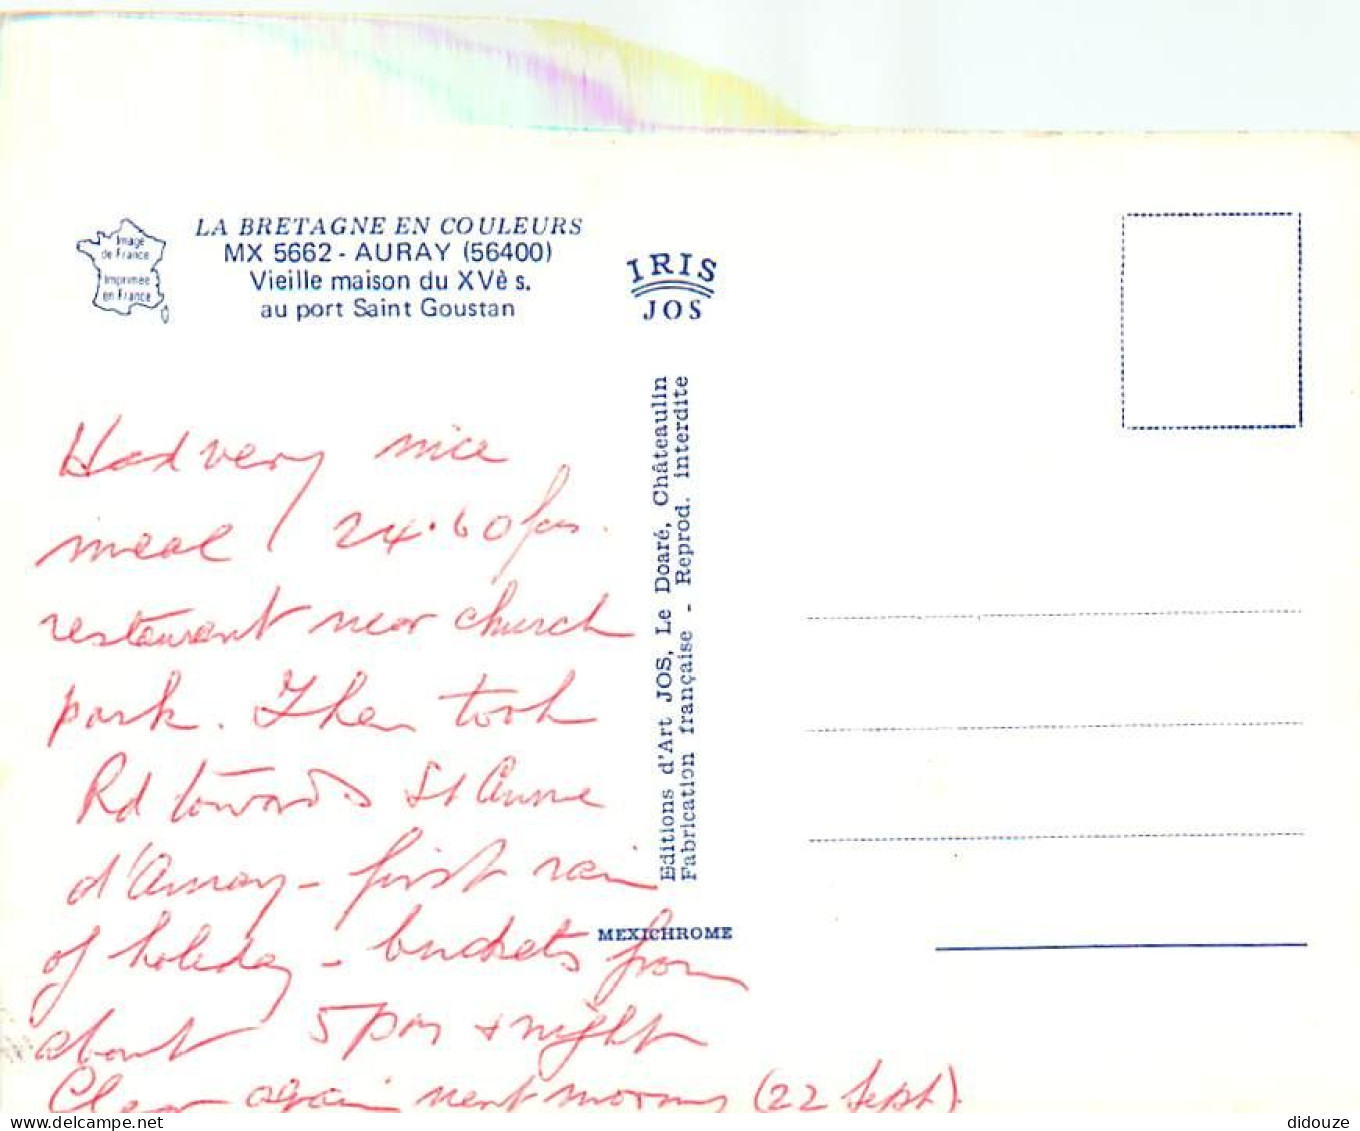 LA BRETAGNE EN COULEURS
MX 5662 - AURAY (56400)
Vieille maison du XVè s.
au port Saint Goustan
Image
de France
Imprimée
en France
IRIS
JOS
Editions d'Art JOS, Le Doaré, Châteaulin
Fabrication française - Reprod. interdite
MEXICHROME
Had very nice
meal 24.60 frs.
restaurant near church
park. Then took
Rd towards St Anne
d'Auray - first rain
of holiday - buckets from
about 5pm + night
Clear again next morning (22 Sept).
didouze